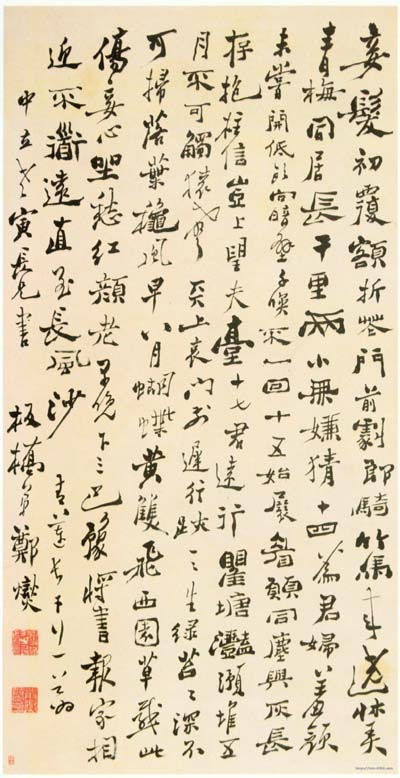 妾髮初覆額折花門前劇郎騎竹馬來遶牀弄
青梅同居長干里兩小無嫌猜十四為君婦羞顏
未嘗開低頭向暗壁千喚不一回十五始展眉願同塵與灰長
存抱柱信豈上望夫臺十七君遠行瞿塘灩澦堆五
月不可觸猿聲天上哀門前遲行跡一一生綠苔苔深不
可掃落葉穐風早八月蝴蝶黃雙飛西園草感此
傷妾心坐愁紅顏老早晚下三巴豫將書報家相
迎不道遠直至長風沙 青蓮長干行一首為
中立老寅長兄書
板橋弟鄭燮